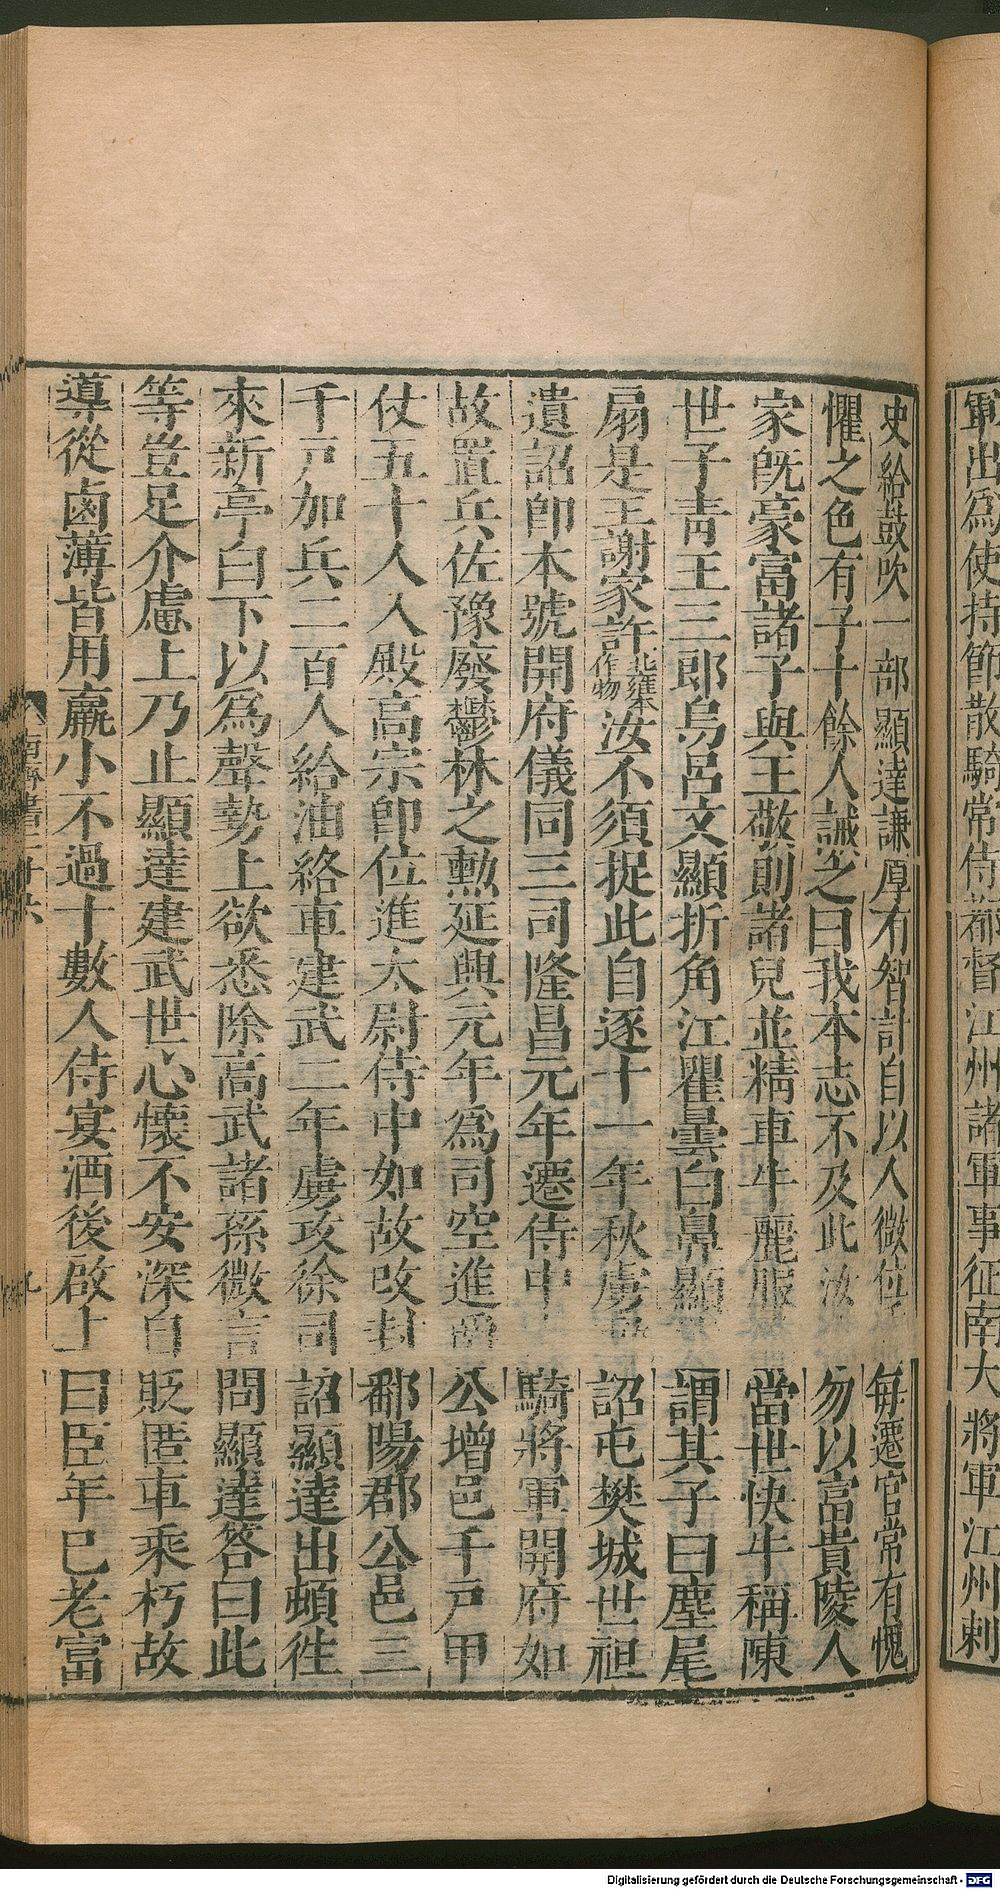 軍出爲使持節散騎常侍都督江州諸軍事征南大將軍江州刺
史給鼓吹一部顯達謙厚有智計自以人微位每遷官常有愧
懼之色有子十餘人誡之曰我本志不及此汝勿以富貴陵人
家旣豪富諸子與王敬則諸兒並精車牛麗服當世快牛稱陳
世子靑王三郎烏呂文顯折角江瞿曇白鼻顯謂其子曰塵尾
扇是王謝家許北雍本作物汝不須捉此自逐十一年秋虜詔屯樊城世祖
遺詔卽本號開府儀同三司隆昌元年遷侍中騎將軍開府如
故置兵佐豫廢鬱林之勳延興元年爲司空進爵公增邑千戸甲
仗五十人入殿高宗卽位進太尉侍中如故改封鄱陽郡公邑三
千戸加兵二百人給油絡車建武二年虜攻徐司詔顯達出頓徃
來新亭白下以爲聲勢上欲悉除高武諸孫微言問顯達答曰此
等豈足介慮上乃止顯達建武世心懷不安深自貶匿車乘朽故
導從鹵薄皆用羸小不過十數人侍宴酒後啟上曰臣年已老富
南齊書二十六
九
Digitalisierung gefördert durch die Deutsche Forschungsgemeinschaft - DFG